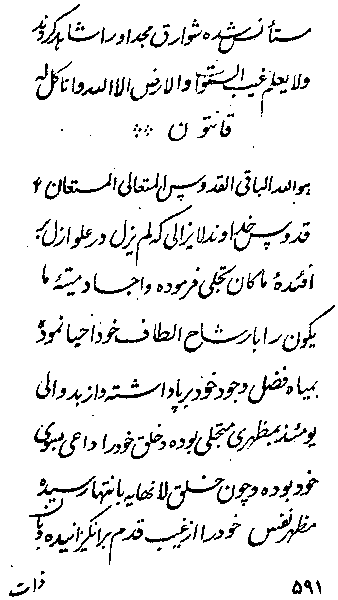 مستأنس شده شوارق مجد او را شاهد کردند
ولا یعلم غیب السموات والارض الا الله وانا کل له
قانتون **
هو الله الباقی القدوس المتعالی المستعان ۴
قدوس خداوند لایزالی که لم یزل در علو ازل بر
افئدهٔ ماکان تجلی فرموده و اجساد میتهٔ ما
یکون را بارشاح الطاف خود احیا نموده
بمیاه فضل وجود خود برپا داشته و از بدو الی
یومئذ بمظهری متجلی بوده و خلق خود را داعی بسوی
خود بوده و چون خلق لانهایه بانتها رسیده
مظهر نفس خود را از غیب قدم برانگیزانیده و با
۵۹۱ ذات